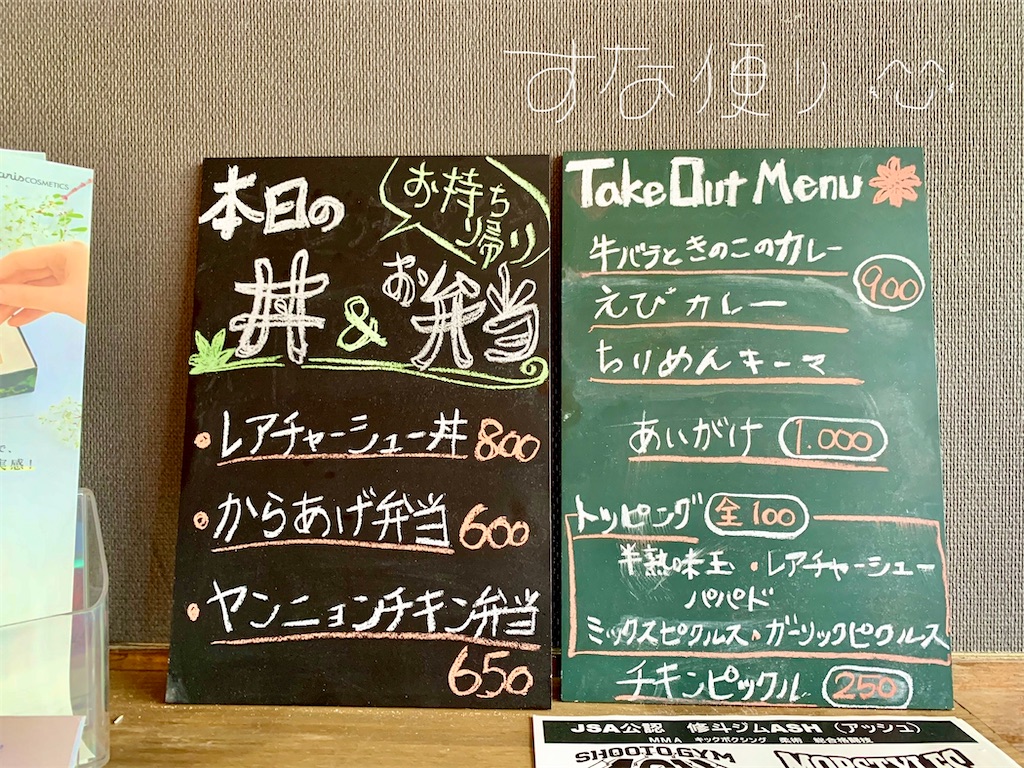 すな便り
arisCOSMETICS
実感！
本日の
お持ち
帰り
丼 & お弁当
レアチャーシュー丼 800
からあげ弁当 600
ヤンニョンチキン弁当
650
Take Out Menu
牛バラときのこのカレー
900
えびカレー
ちりめんキーマ
あいがけ 1.000
トッピング 全100
半熟味玉・レアチャーシュー
パパド
ミックスピクルス・ガーリックピクルス
チキンピックル 250
JSA公認 修斗ジムASH（アッシュ）
MMA キックボクシング 柔術 総合格闘技
SHOOTO GYM
MOBSTYLES